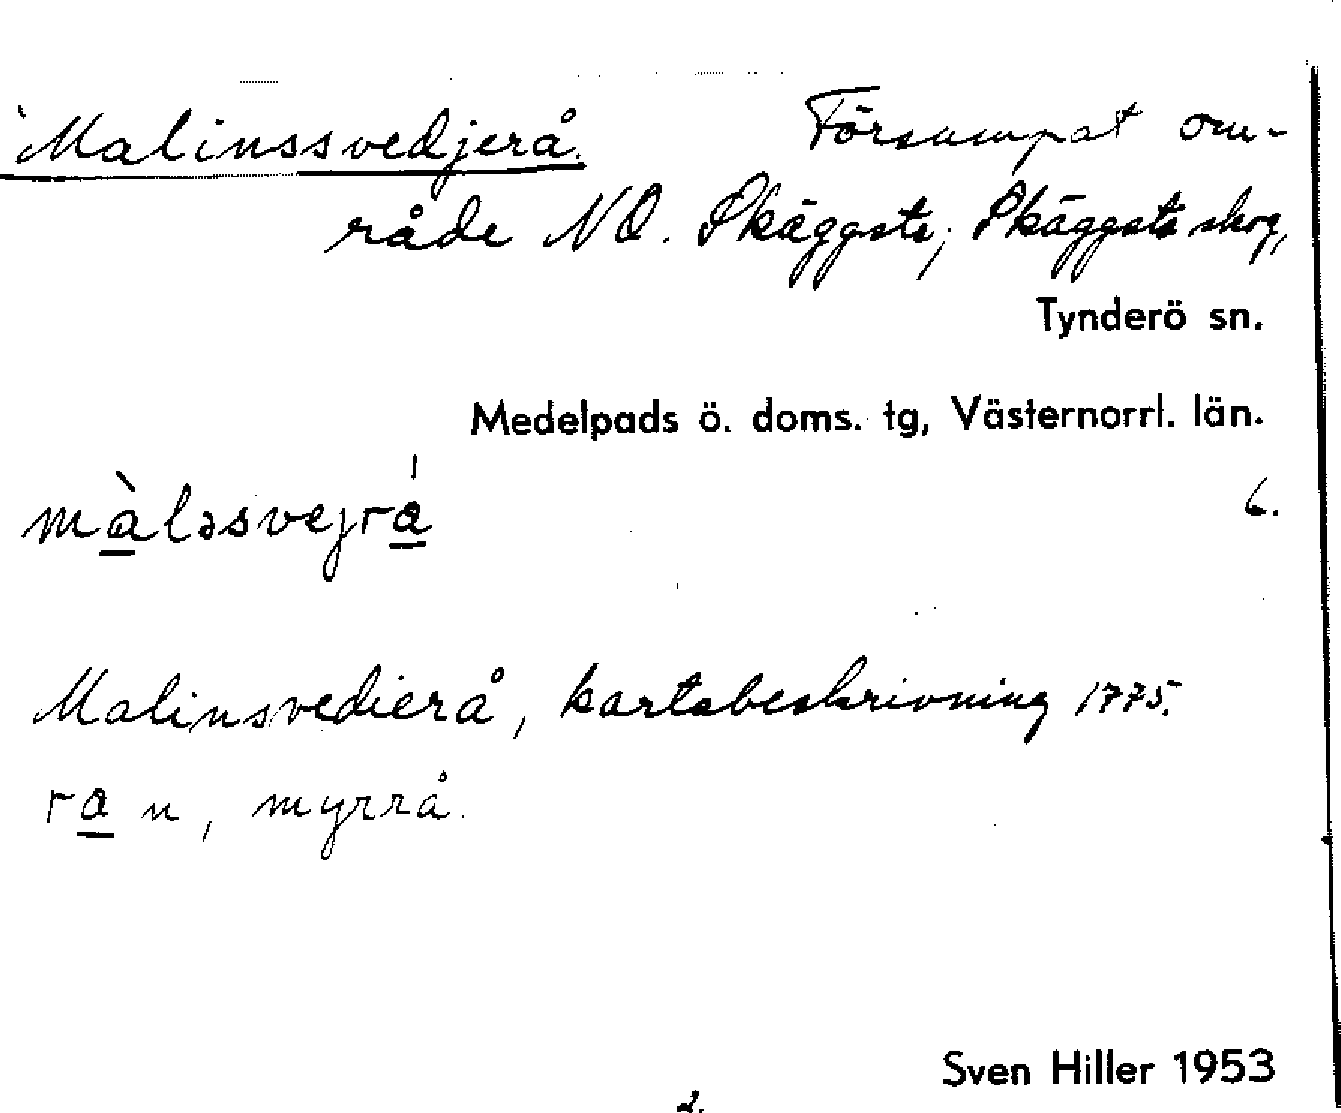 Malinssvedjerå. Försumpat om-
råde NO. Skäggsta, Skäggsta skog,
Tynderö sn.
Medelpads ö. doms. tg, Västernorrl. län.
6.
màləsvejrá
Malinsvedierå, kartabeskrivning 1775.
ra n, myrrå.
Sven Hiller 1953
2.